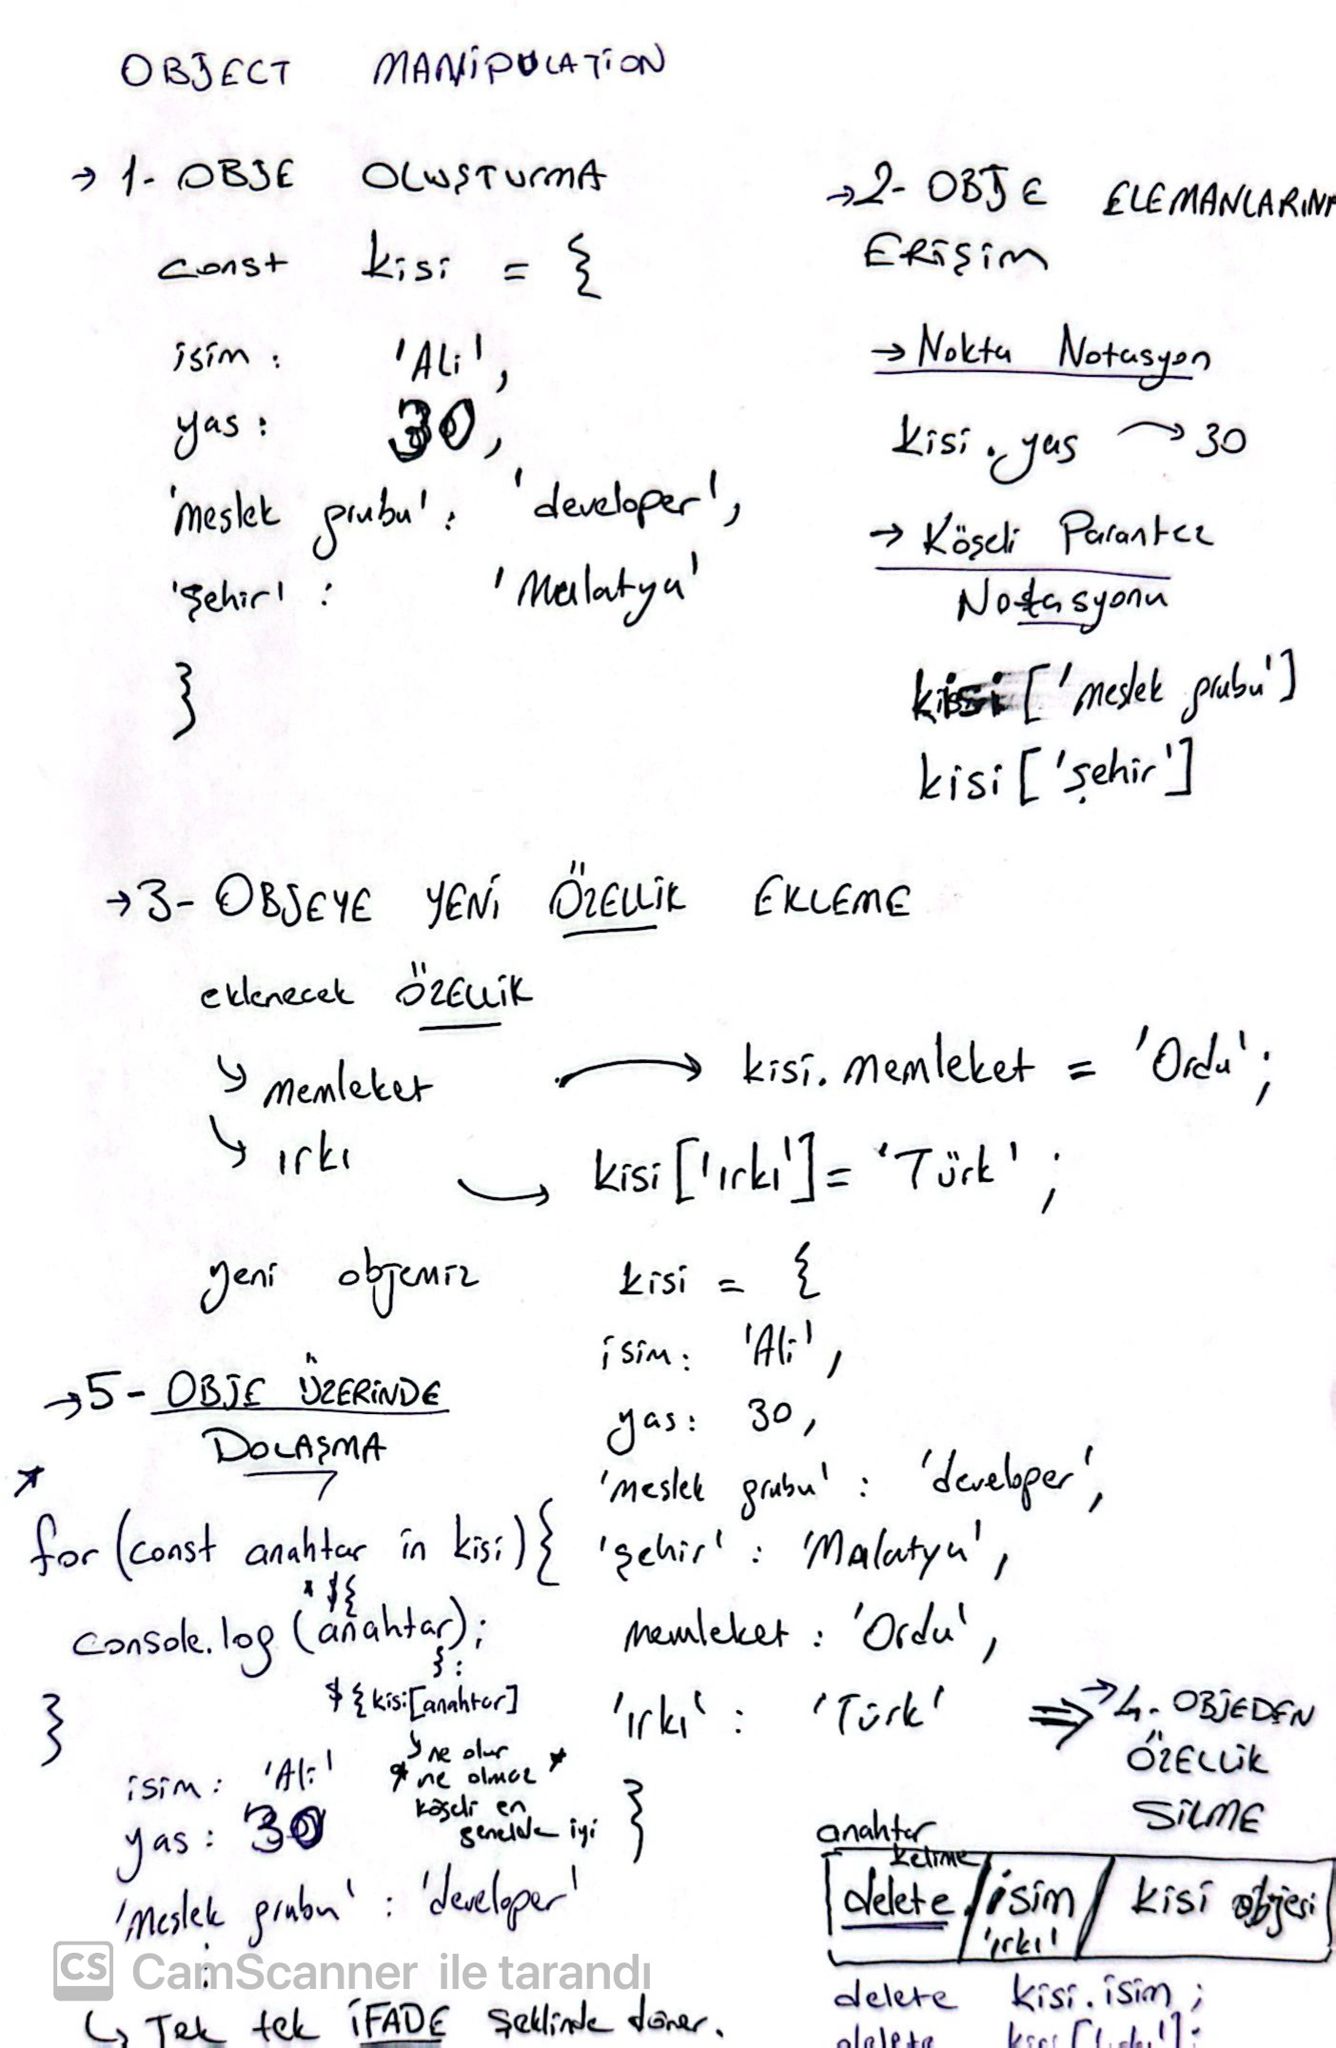 OBJECT MANİPULATİON
→ 1- OBJE OLUŞTURMA
const kisi = {
isim : 'Ali',
yas : 30,
'meslek grubu' : 'developer',
'şehir' : 'Malatya'
}
→ 2- OBJE ELEMANLARINA
ERİŞİM
→ Nokta Notasyon
kisi.yas → 30
→ Köşeli Parantez
Notasyonu
kisi['meslek grubu']
kisi['şehir']
→ 3- OBJEYE YENİ ÖZELLİK EKLEME
eklenecek ÖZELLİK
↳ memleket → kisi.memleket = 'Ordu';
↳ ırkı → kisi['ırkı'] = 'Türk';
yeni objemiz
kisi = {
isim : 'Ali',
yas : 30,
'meslek grubu' : 'developer',
'şehir' : 'Malatya',
memleket : 'Ordu',
'ırkı' : 'Türk'
}
⇒ → 4- OBJEDEN
ÖZELLİK
SİLME
anahtar
kelime
delete / isim / kisi objesi
'ırkı'
delete kisi.isim ;
delete
→ 5- OBJE ÜZERİNDE
DOLAŞMA
for (const anahtar in kisi) {
${
console.log (anahtar);
} :
${kisi[anahtar]
}
↳ ne olur
* ne olmaz *
köşeli en
genelde iyi
isim : 'Ali'
yas : 30
'meslek grubu' : 'developer'
:
↳ Tek tek İFADE şeklinde döner.
CS CamScanner ile tarandı